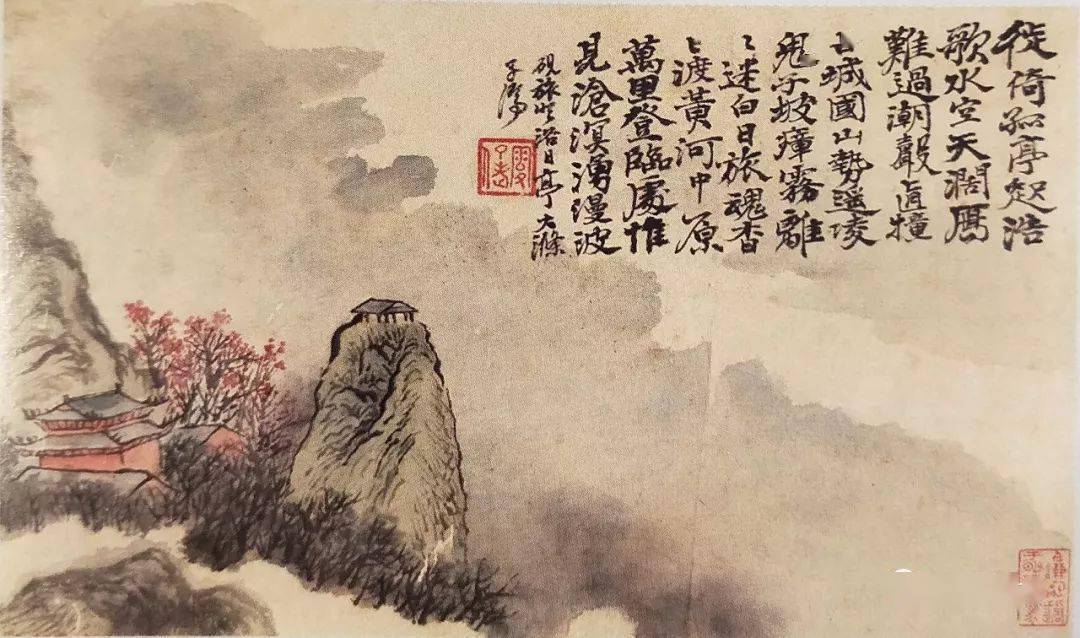 徙倚孤亭起浩
歌水空天濶雁
難過潮聲直撞
亡城國山勢遥凌
鬼子坡瘴霧離
〻迷白日旅魂杳
〻渡黃河中原
萬里登臨處惟
見滄溟湧漫波
硯旅浴日亭大滌
子濟